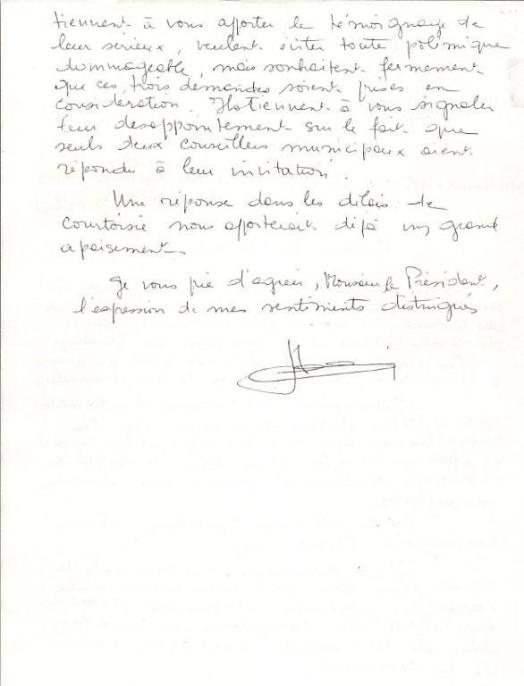 tiennent à vous apporter le témoignage de
leur sérieux, veulent éviter toute polémique
dommageable, mais souhaitent fermement
que ces trois demandes soient prises en
considération. Ils tiennent à vous signaler
leur désappointement sur le fait que
seuls deux conseillers municipaux aient
répondu à leur invitation.
Une réponse dans les délais de
courtoisie nous apporterait déjà un grand
apaisement.
Je vous prie d'agréer, Monsieur le Président,
l'expression de mes sentiments distingués